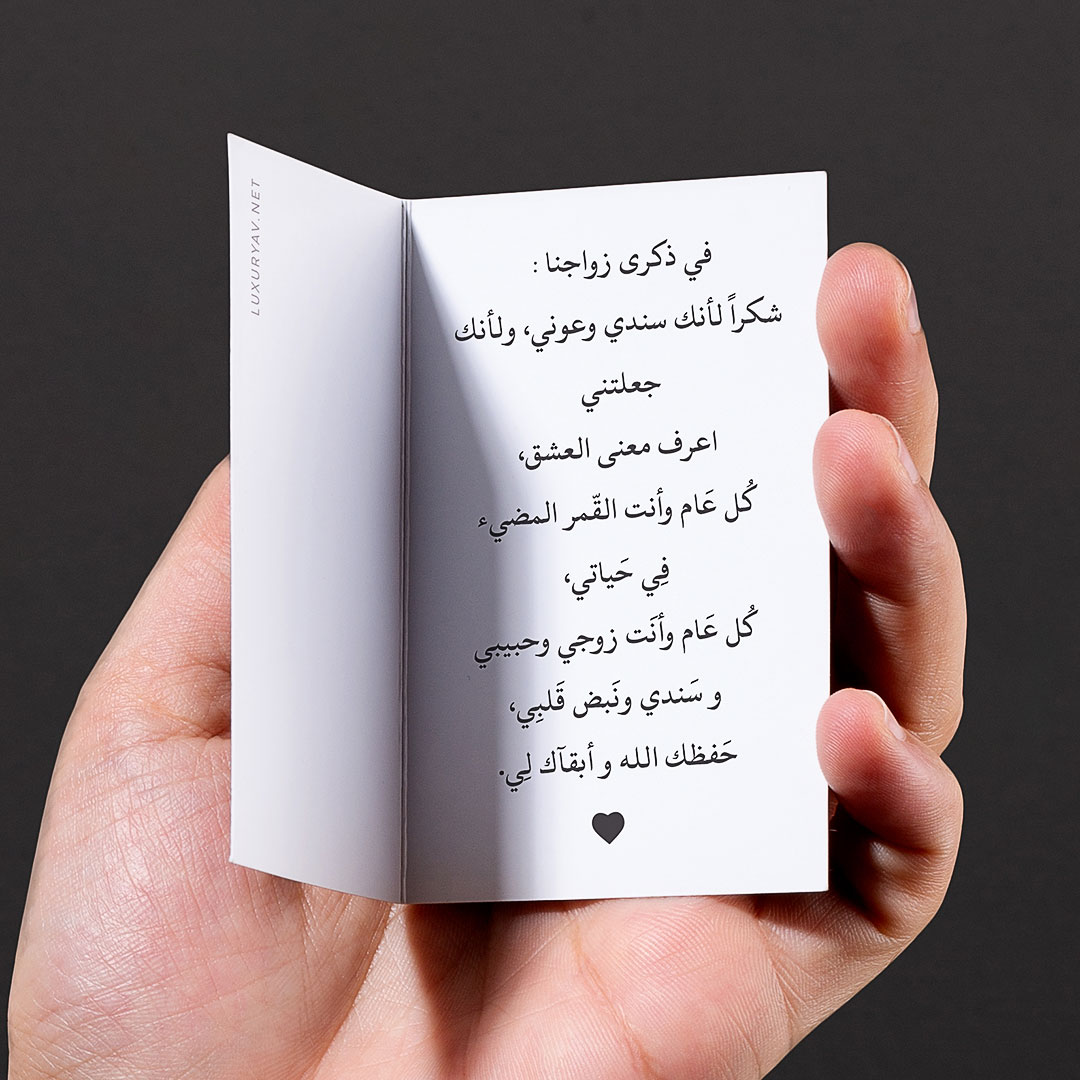 LUXURYAV.NET
في ذكرى زواجنا :
شكراً لأنك سندي وعوني، ولأنك
جعلتني
اعرف معنى العشق،
كُل عَام وأنت القّمر المضيء
فِي حَياتي،
كُل عَام وأنَت زوجي وحبيبي
و سَندي ونَبض قَلبِي،
حَفظك الله و أبقآك لِي.